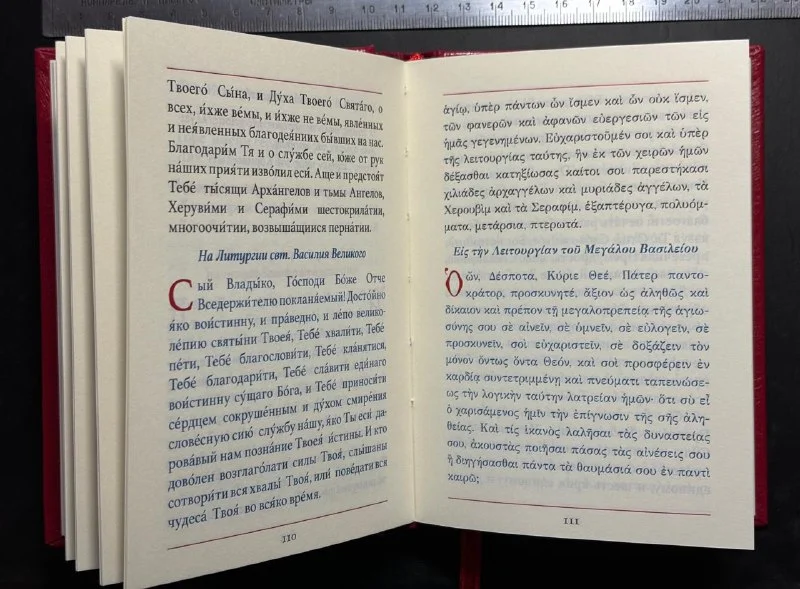 Твоего́ Сы́на, и Ду́ха Твоего́ Свята́го, о
всех, и́хже ве́мы, и и́хже не ве́мы, явле́нных
и неявле́нных благодея́ниих бы́вших на нас.
Благодари́м Тя и о слу́жбе сей, ю́же от рук
на́ших прия́ти изво́лил еси́. Аще и предстоя́т
Тебе́ ты́сящи Арха́нгелов и тьмы Ангелов,
Херуви́ми и Серафи́ми шестокрила́тии,
многоочи́тии, возвыша́щиися перна́тии.
На Литургии свт. Василия Великого
Сый Влады́ко, Го́споди Бо́же Отче
Вседержи́телю покланя́емый! Досто́йно
я́ко вои́стинну, и пра́ведно, и ле́по велико-
ле́пию святы́ни Твоея́, Тебе́ хвали́ти, Тебе́
пе́ти, Тебе́ благослови́ти, Тебе́ кла́нятися,
Тебе́ благодари́ти, Тебе́ сла́вити еди́наго
вои́стинну су́щаго Бо́га, и Тебе́ приноси́ти
се́рдцем сокруше́нным и ду́хом смире́ния
слове́сную сию́ слу́жбу на́шу, я́ко Ты еси́ да-
рова́вый нам позна́ние Твоея́ и́стины. И кто
дово́лен возглаго́лати си́лы Твоя́, слы́шаны
сотвори́ти вся хвалы́ Твоя́, или́ пове́дати вся
чудеса́ Твоя́ во вся́ко вре́мя.
110
ἁγίῳ, ὑπὲρ πάντων ὧν ἴσμεν καὶ ὧν οὐκ ἴσμεν,
τῶν φανερῶν καὶ ἀφανῶν εὐεργεσιῶν τῶν εἰς
ἡμᾶς γεγενημένων. Εὐχαριστοῦμέν σοι καὶ ὑπὲρ
τῆς λειτουργίας ταύτης, ἣν ἐκ τῶν χειρῶν ἡμῶν
δέξασθαι κατηξίωσας καίτοι σοι παρεστήκασι
χιλιάδες ἀρχαγγέλων καὶ μυριάδες ἀγγέλων, τὰ
Χερουβὶμ καὶ τὰ Σεραφίμ, ἑξαπτέρυγα, πολυόμ-
ματα, μετάρσια, πτερωτά.
Εἰς τὴν Λειτουργίαν τοῦ Μεγάλου Βασιλείου
Ὁ ὤν, Δέσποτα, Κύριε Θεέ, Πάτερ παντο-
κράτορ, προσκυνητέ, ἄξιον ὡς ἀληθῶς καὶ
δίκαιον καὶ πρέπον τῇ μεγαλοπρεπείᾳ τῆς ἁγιω-
σύνης σου σὲ αἰνεῖν, σὲ ὑμνεῖν, σὲ εὐλογεῖν, σὲ
προσκυνεῖν, σοὶ εὐχαριστεῖν, σὲ δοξάζειν τὸν
μόνον ὄντως ὄντα Θεόν, καὶ σοὶ προσφέρειν ἐν
καρδίᾳ συντετριμμένῃ καὶ πνεύματι ταπεινώσε-
ως τὴν λογικὴν ταύτην λατρείαν ἡμῶν· ὅτι σὺ εἶ
ὁ χαρισάμενος ἡμῖν τὴν ἐπίγνωσιν τῆς σῆς ἀλη-
θείας. Καὶ τίς ἱκανὸς λαλῆσαι τὰς δυναστείας
σου, ἀκουστὰς ποιῆσαι πάσας τὰς αἰνέσεις σου
ἢ διηγήσασθαι πάντα τὰ θαυμάσιά σου ἐν παντὶ
καιρῷ;
111